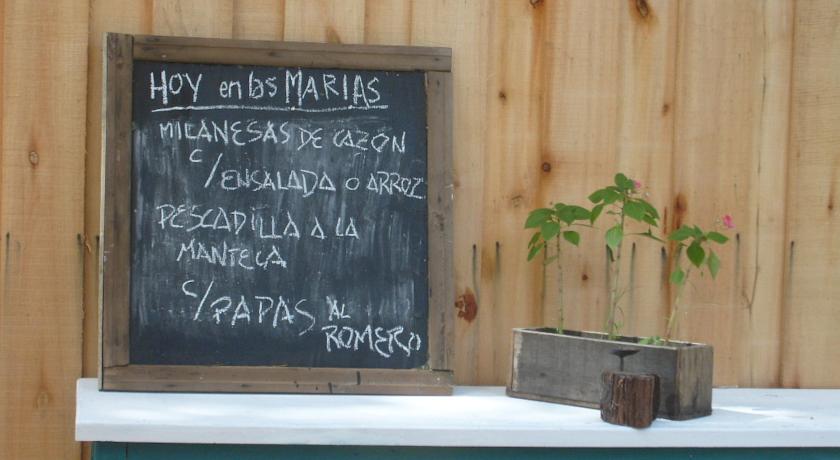 HOY en las MARIAS
MILANESAS DE CAZÓN
C/ENSALADA O ARROZ
PESCADILLA A LA
MANTECA
C/PAPAS AL
ROMERO